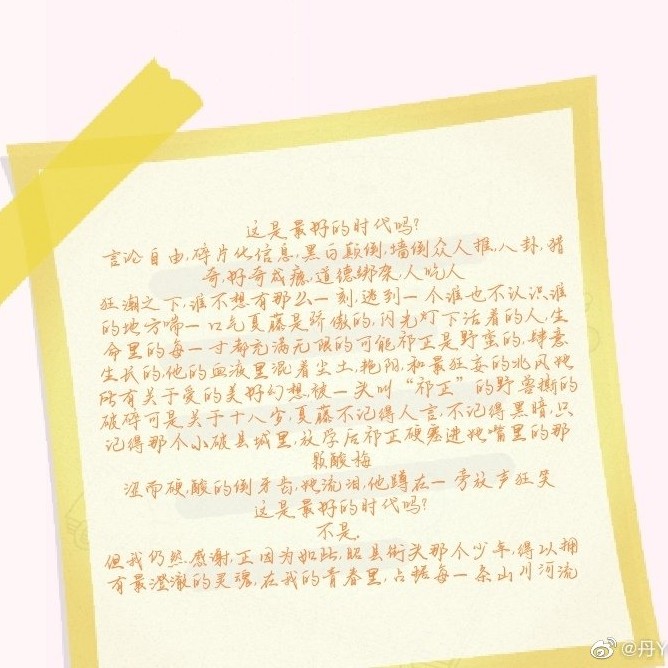 这是最好的时代吗?
言论自由,碎片化信息,黑白颠倒,墙倒众人推,八卦,猎
奇,好奇成瘾,道德绑架,人吃人
狂潮之下,谁不想有那么一刻,逃到一个谁也不认识谁
的地方喘一口气夏藤是骄傲的,闪光灯下活着的人,生
命里的每一寸都充满无限的可能祁正是野蛮的,肆意
生长的,他的血液里混着尘土,艳阳,和最狂妄的北风她
所有关于爱的美好幻想,被一头叫“祁正”的野兽撕的
破碎可是关于十八岁,夏藤不记得人言,不记得黑暗,只
记得那个小破县城里,放学后祁正硬塞进她嘴里的那
颗酸梅
涩而硬,酸的倒牙齿,她流泪,他蹲在一旁放声狂笑
这是最好的时代吗?
不是.
但我仍然感谢,正因为如此,昭县街头那个少年,得以拥
有最澄澈的灵魂,在我的青春里,占据每一条山川河流
@丹Y